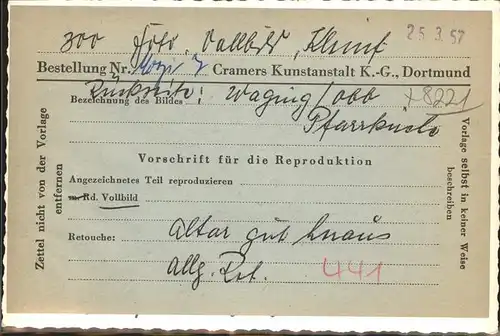 300 Foto, Vollbild,
25.3.57
Bestellung Nr. Cramers Kunstanstalt K.-G., Dortmund
Rückseite: Waging/Obb +8221
Bezeichnung des Bildes:
Pfarrkirche
Vorschrift für die Reproduktion
Angezeichnetes Teil reproduzieren
m. Rd. Vollbild
Retouche: Altar gut heraus
Allg. Ret. 441
Zettel nicht von der Vorlage
entfernen
Vorlage selbst in keiner Weise
beschreiben